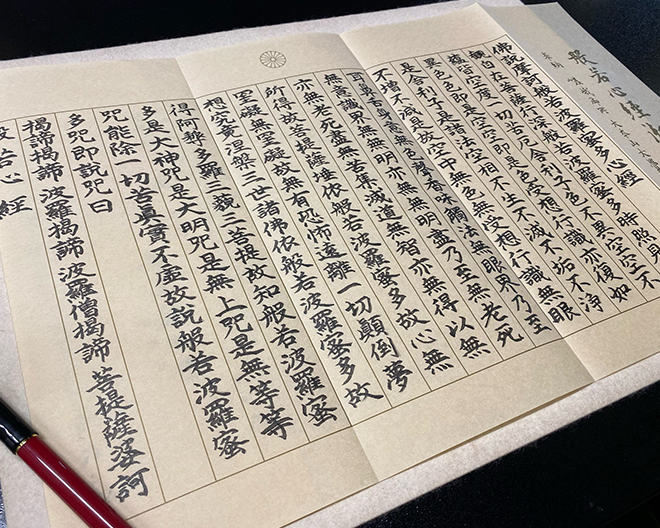 般若心經
佛説摩訶般若波羅蜜多心經
觀自在菩薩行深般若波羅蜜多時照見
五蘊皆空度一切苦厄舎利子色不異空空不
異色色即是空空即是色受想行識亦復如
是舎利子是諸法空相不生不滅不垢不淨
不增不減是故空中無色無受想行識無眼
耳鼻舌身意無色聲香味觸法無眼界乃至
無意識界無無明亦無無明盡乃至無老死
亦無老死盡無苦集滅道無智亦無得以無
所得故菩提薩埵依般若波羅蜜多故心無
罣礙無罣礙故無有恐怖遠離一切顛倒夢
想究竟涅槃三世諸佛依般若波羅蜜多故
得阿耨多羅三藐三菩提故知般若波羅蜜
多是大神咒是大明咒是無上咒是無等等
咒能除一切苦眞實不虛故説般若波羅蜜
多咒即説咒曰
揭諦揭諦 波羅揭諦 波羅僧揭諦 菩提薩婆訶
般若心經